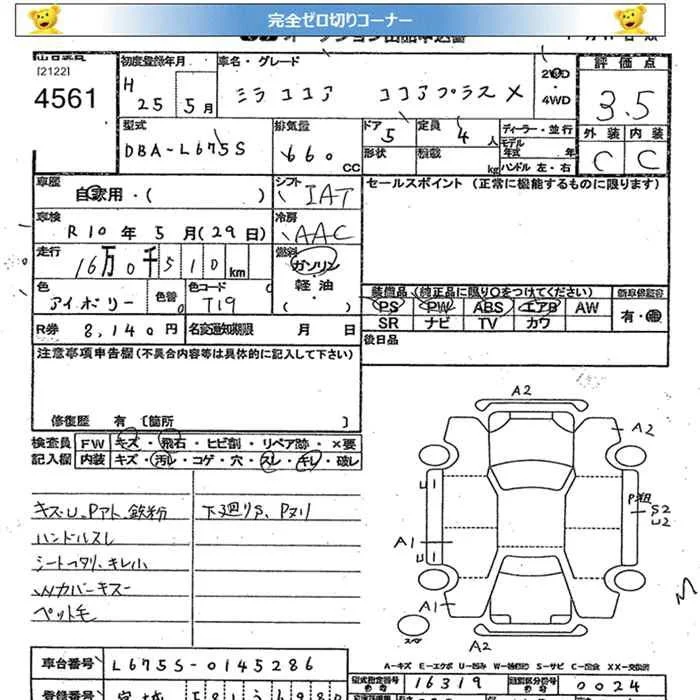 完全ゼロ切りコーナー
[2122]
4561
初度登録年月
H 25 5月
車名・グレード
ミラ ココア ココアプラス X
2WD・4WD
評価点
3.5
外装 内装
C C
型式
DBA-L675S
排気量
660 CC
ドア 5
形状
定員 4 人
積載 kg
ディーラー・並行
モデル年式 年
ハンドル 左・右
車歴
自家用・( )
シフト
IAT
セールスポイント (正常に機能するものに限ります)
車検
R10年 5月(29日)
冷房
AAC
走行
16万0千510 km
燃料
ガソリン
軽油
( )
色
アイボリー
色替
色コード
T19
装備品(純正品に限り〇をつけてください)
PS PW ABS エアB AW
SR ナビ TV カワ
有・無
R券 8,140円
名変通知期限 月 日
後日品
注意事項申告欄(不具合内容等は具体的に記入して下さい)
修復歴 有 〔箇所 〕
検査員記入欄
FW キズ・飛石・ヒビ割・リペア跡・×要
内装 キズ・汚レ・コゲ・穴・スレ・キレ・破レ
キズ・U、Pアト、鉄粉
下廻りS、Pヌリ
ハンドルスレ
シートヘタリ、キレ小
ペット毛
A2
A2
U1
P粗
S2
U2
A1
U1
A1
A2
A-キズ E-エクボ U-凹み S-サビ XX-交換済
車台番号
L675S-0145286
型式指定番号
16319
類別区分番号
0024
登録番号